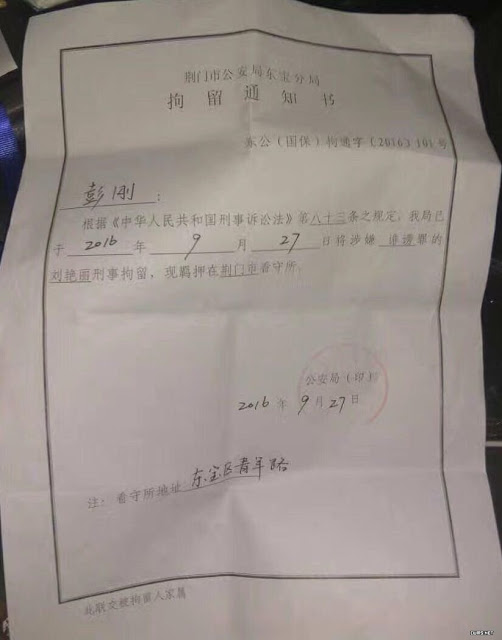 荆门市公安局东宝分局
拘留通知书
东公(国保)拘通字〔2016〕101号
彭刚:
根据《中华人民共和国刑事诉讼法》第八十三条之规定,我局已
于2016年9月27日将涉嫌诽谤罪的
刘艳丽刑事拘留,现羁押在荆门市看守所。
公安局(印)
2016年9月27日
注:看守所地址:东宝区青年路
此联交被拘留人家属